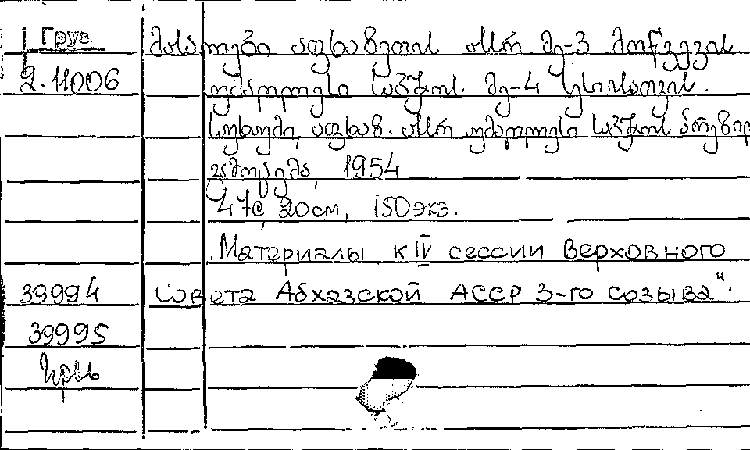 Груз.
2.11006
მასალები აფხაზეთის ასსრ მე-3 მოწვევის
უმაღლესი საბჭოს მე-4 სესიისათვის.
სოხუმი, აფხაზ. ასსრ უმაღლესი საბჭოს
გამოცემა, 1954
47с, 20см, 150экз.
Материалы к IV сессии Верховного
39994 Совета Абхазской АССР 3-го созыва".
39995